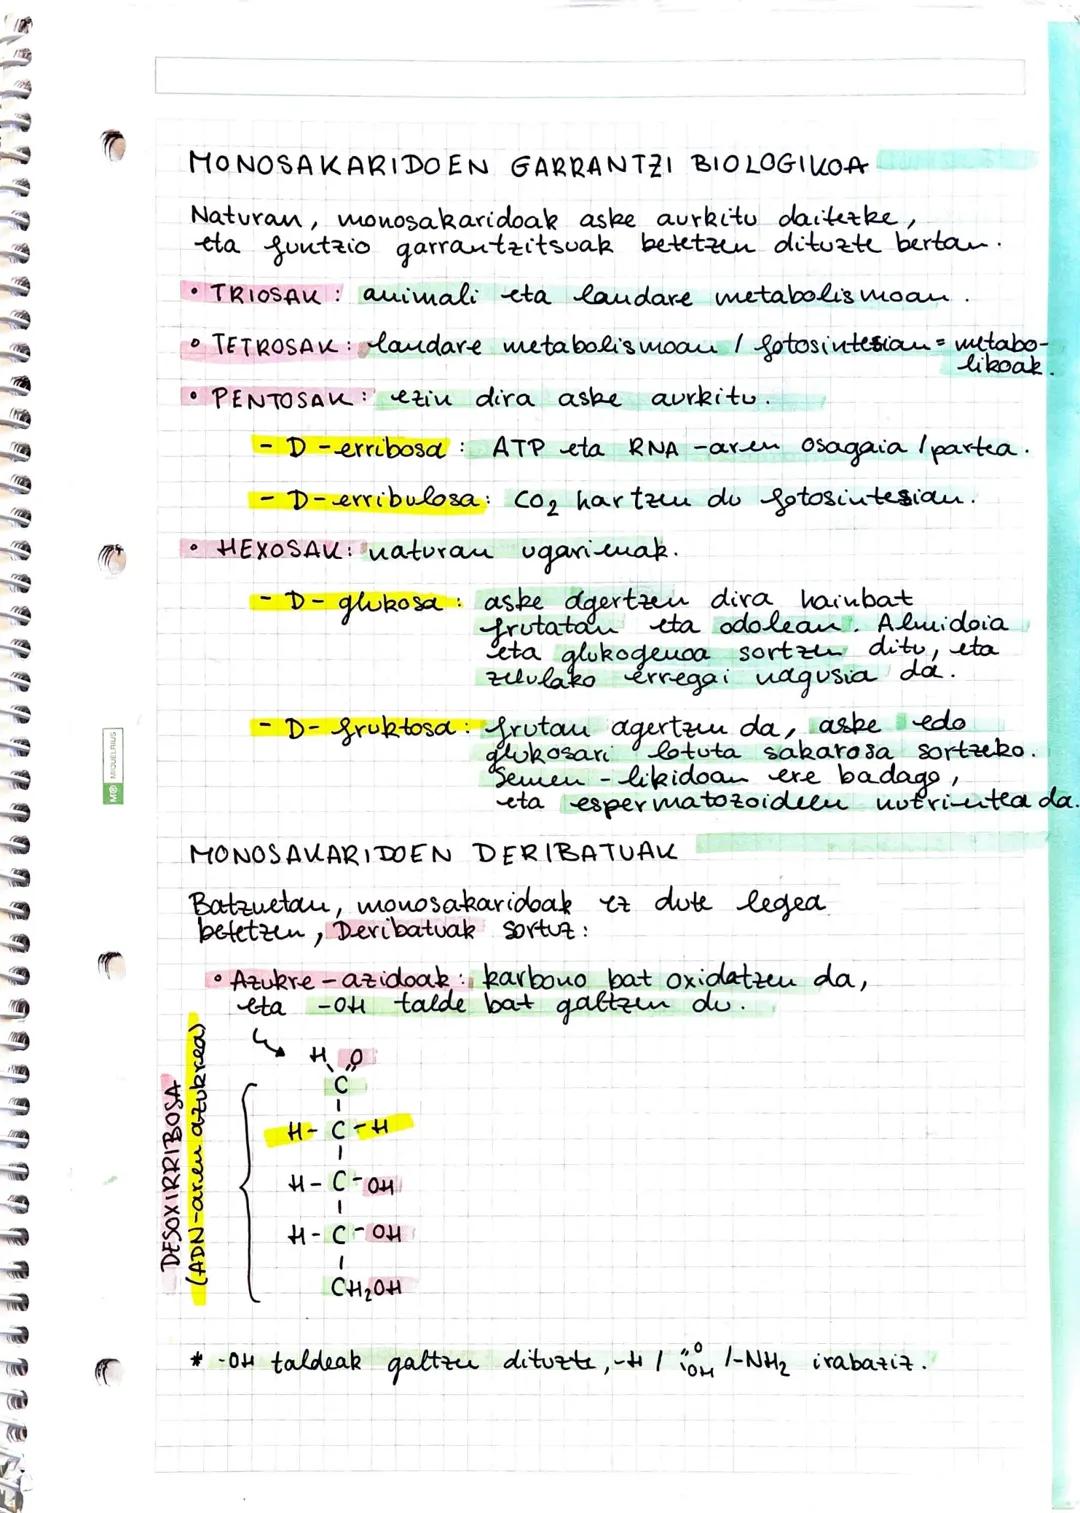 MONOSAKARIDOEN GARRANTZI BIOLOGIKOA
Naturan, monosakaridoak aske aurkitu daitezke,
eta funtzio garrantzitsuak betetzen dituzte bertan.
• TRIOSAK: animali eta landare metabolismoan.
• TETROSAK: landare metabolismoan / fotosintesian = metabo-
likoak.
• PENTOSAK: ezin dira aske aurkitu.
- D-erribosa: ATP eta RNA-aren osagaia / partea.
- D-erribulosa: CO₂ hartzen du fotosintesian.
• HEXOSAK: naturan ugarienak.
- D-glukosa: aske agertzen dira hainbat
frutatan eta odolean. Almidoia
eta glukogenoa sortzen ditu, eta
zelulako erregai nagusia da.
- D-fruktosa: frutan agertzen da, aske edo
glukosari lotuta sakarosa sortzeko.
Semen-likidoan ere badago,
eta espermatozoideen nutrientea da.
MIQUELRIUS
MONOSAKARIDOEN DERIBATUAK
Batzuetan, monosakaridoak ez dute legea
betetzen, Deribatuak sortuz:
• Azukre-azidoak: karbono bat oxidatzen da,
eta -OH talde bat galtzen du.
DESOXIRRIBOSA
(ADN-aren azukrea)
H O
C
H-C-H
H-C-OH
H-C-OH
CH₂OH
* -OH taldeak galtzen dituzte, -H / C=O OH / -NH₂ irabaziz.